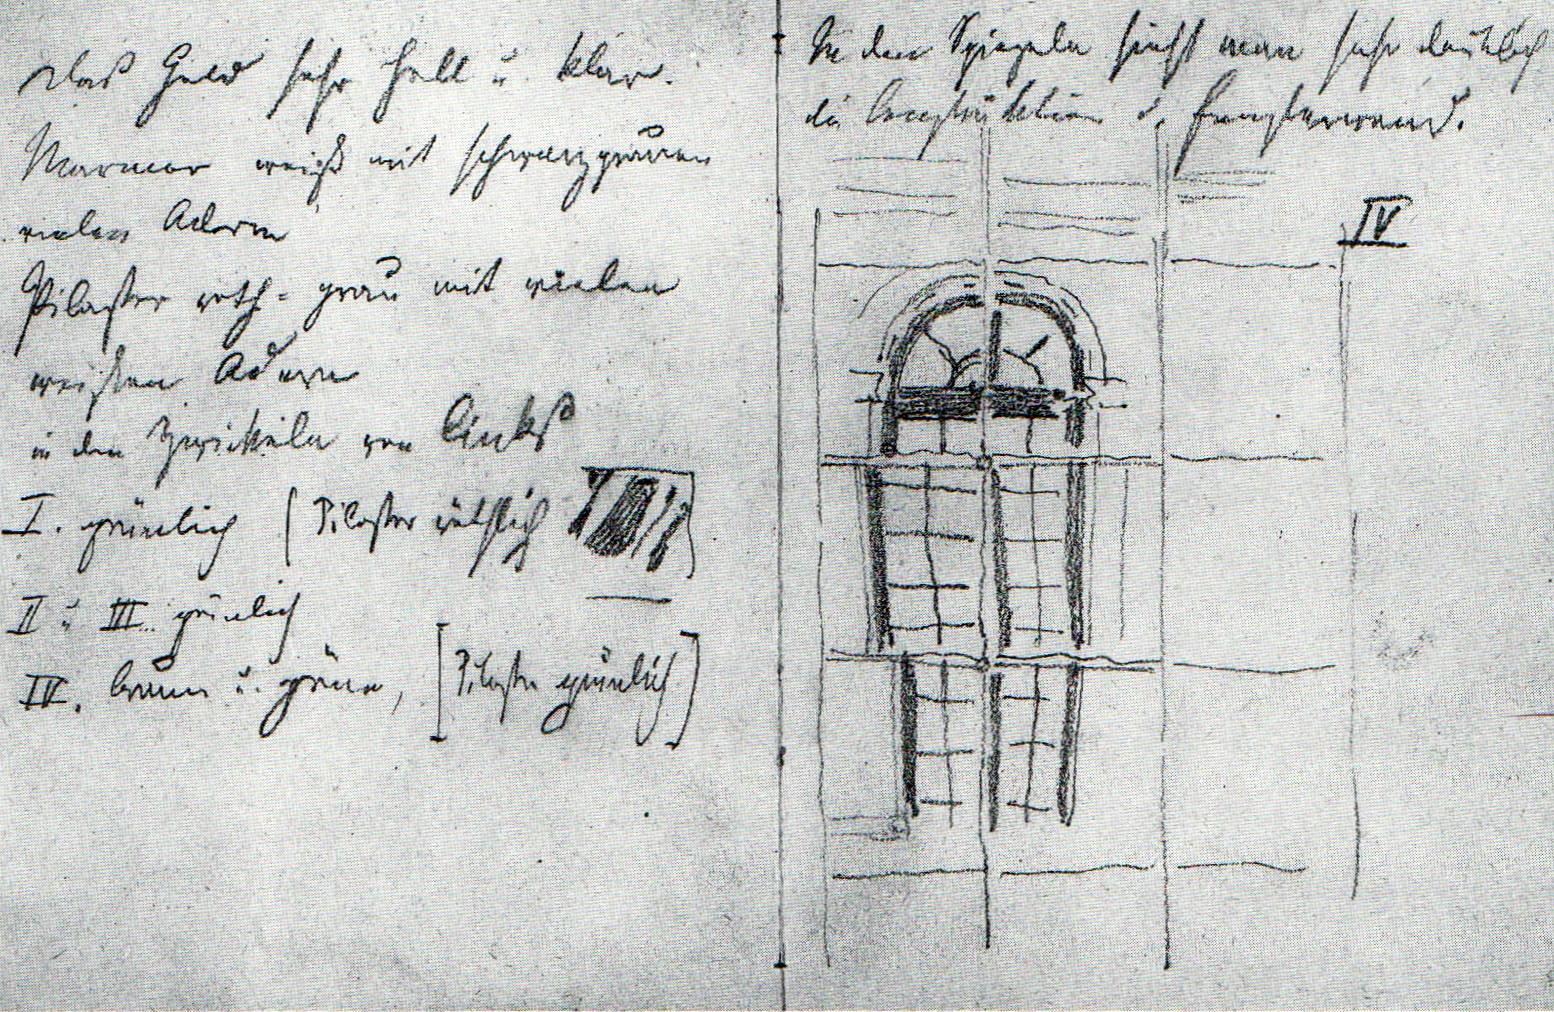 Das Gold sehr hell u. klar.
Marmor weiß mit schwarzgrauen
vielen Adern
Pilaster roth-grau mit vielen
weißen Adern
in den Zwickeln von links
I. grünlich (Pilaster röthlich
II u III. grünlich
IV. braun u. grün, [Pilaster grünlich]
In den Spiegeln sieht man sehr deutlich
die Construktion d. Fensterwand.
IV